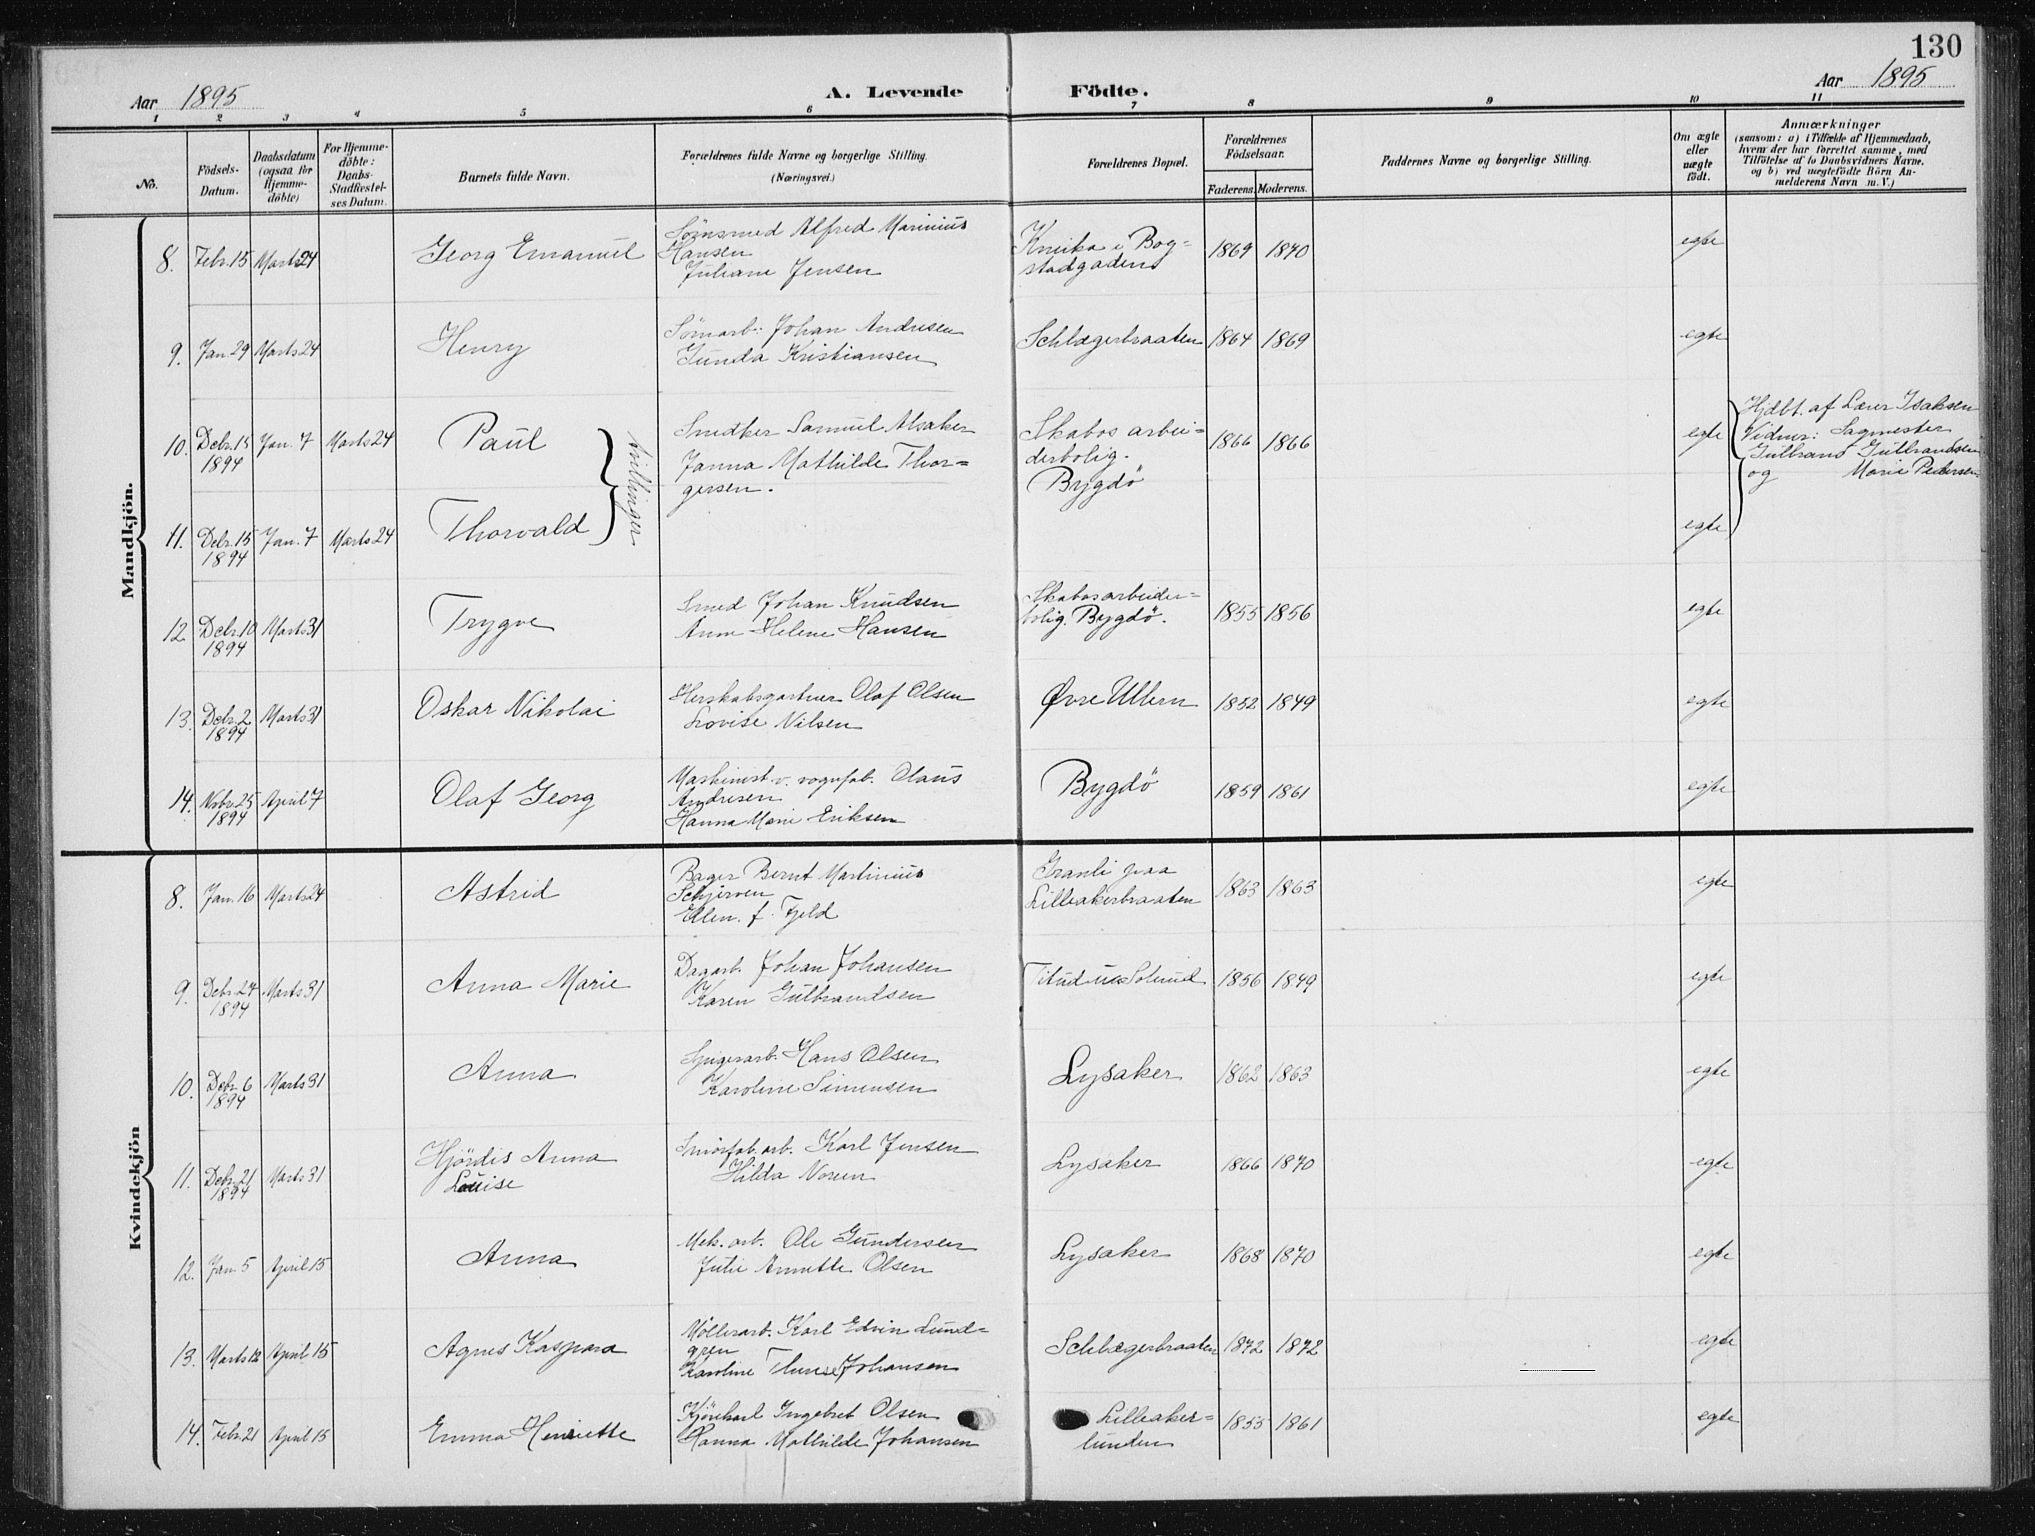 130
Aar 1895
A. Levende Födte.
Aar 1895
1 2 3 4 5 6 7 8 9 10 11
No.
Födsels-Datum.
Daabsdatum (ogsaa for Hjemme-döbte)
For Hjemme-döbte: Daabs-Stadfæstel-ses Datum.
Barnets fulde Navn.
Forældrenes fulde Navne og borgerlige Stilling. (Næringsvei.)
Forældrenes Bopæl.
Forældrenes Födselsaar.
Faderens. Moderens.
Faddernes Navne og borgerlige Stilling.
Om ægte eller uægte födt.
Anmærkninger
(saasom: a) i Tilfælde af Hjemmedaab, hvem der har forrettet samme, med Tilföielse af to Daabsvidners Navne. og b) ved uægtefödte Börn An-melderens Navn m. V.)
Mandkjön.
8. Febr. 15 Marts 24 Georg Emanuel
Sömsmed Alfred Marinius
Hansen
Juliane Jensen
Kneika i Bog-
stadgaden
1869 1870 egte
9. Jan. 29 Marts 24 Henry
Sömarb: Johan Andresen
Gunda Kristiansen
Schlægerbraaten 1864 1869 egte
10. Debr. 15 1894 Jan. 7 Marts 24 Paul
tvillinger
Snedker Samuel Alsaker
Janna Mathilde Thor-
gersen.
Skabos arbei-
derbolig.
Bygdö
1866 1866 egte
Hjdbt. af Lærer Isaksen
Vidner: Sagmester
Gulbrand Gulbrandsen
og Marie Pedersen
11. Debr. 15 1894 Jan. 7 Marts 24 Thorvald egte
12 Debr. 10 1894 Marts 31 Trygve
Smed Johan Knudsen
Anne Helene Hansen
Skabosarbeider-
bolig. Bygdö.
1855 1856 egte
13. Debr. 2 1894 Marts 31 Oskar Nikolai
Herskabsgartner Olaf Olsen
Lovise Nilsen
Øvre Ullern 1852 1849 egte
14. Nobr. 25 1894 April 7 Olaf Georg
Maskinist v. vognfab. Olaus
Andresen
Hanna Marie Eriksen
Bygdö 1859 1861 egte
Kvindekjön
8. Jan. 16 Marts 24 Astrid
Bager Bernt Martinius
Schjerven
Ellen. f. Fjeld
Granli paa
Lilleakerbraaten
1863 1863 egte
9. Debr. 24 1894 Marts 31 Anna Marie
Dagarb. Johan Johansen
Karen Gulbrandsen
1856 1849 egte
10. Debr. 6 1894 Marts 31 Anna
Spigerarb. Hans Olsen
Karoline Simensen
Lysaker 1862 1863 egte
11. Debr. 21 1894 Marts 31 Hjördis Anna
Louise
Smörfab. arb. Karl Jensen
Hilda Noren
Lysaker 1866 1870 egte
12. Jan. 5 April 15 Anna
Mek. arb. Ole Gundersen
Julie Annette Olsen
Lysaker 1868 1870 egte
13. Marts 12 April 15 Agnes Kaspara
Möllerarb. Karl Edvin Lund-
gren
Karoline Therese Johansen
Schlægerbraaten 1872 1872 egte
14. Febr. 21 April 15 Emma Henriette
Kjörekarl Ingebret Olsen
Hanna Mathilde Johansen
Lilleaker-
lunden
1855 1861 egte